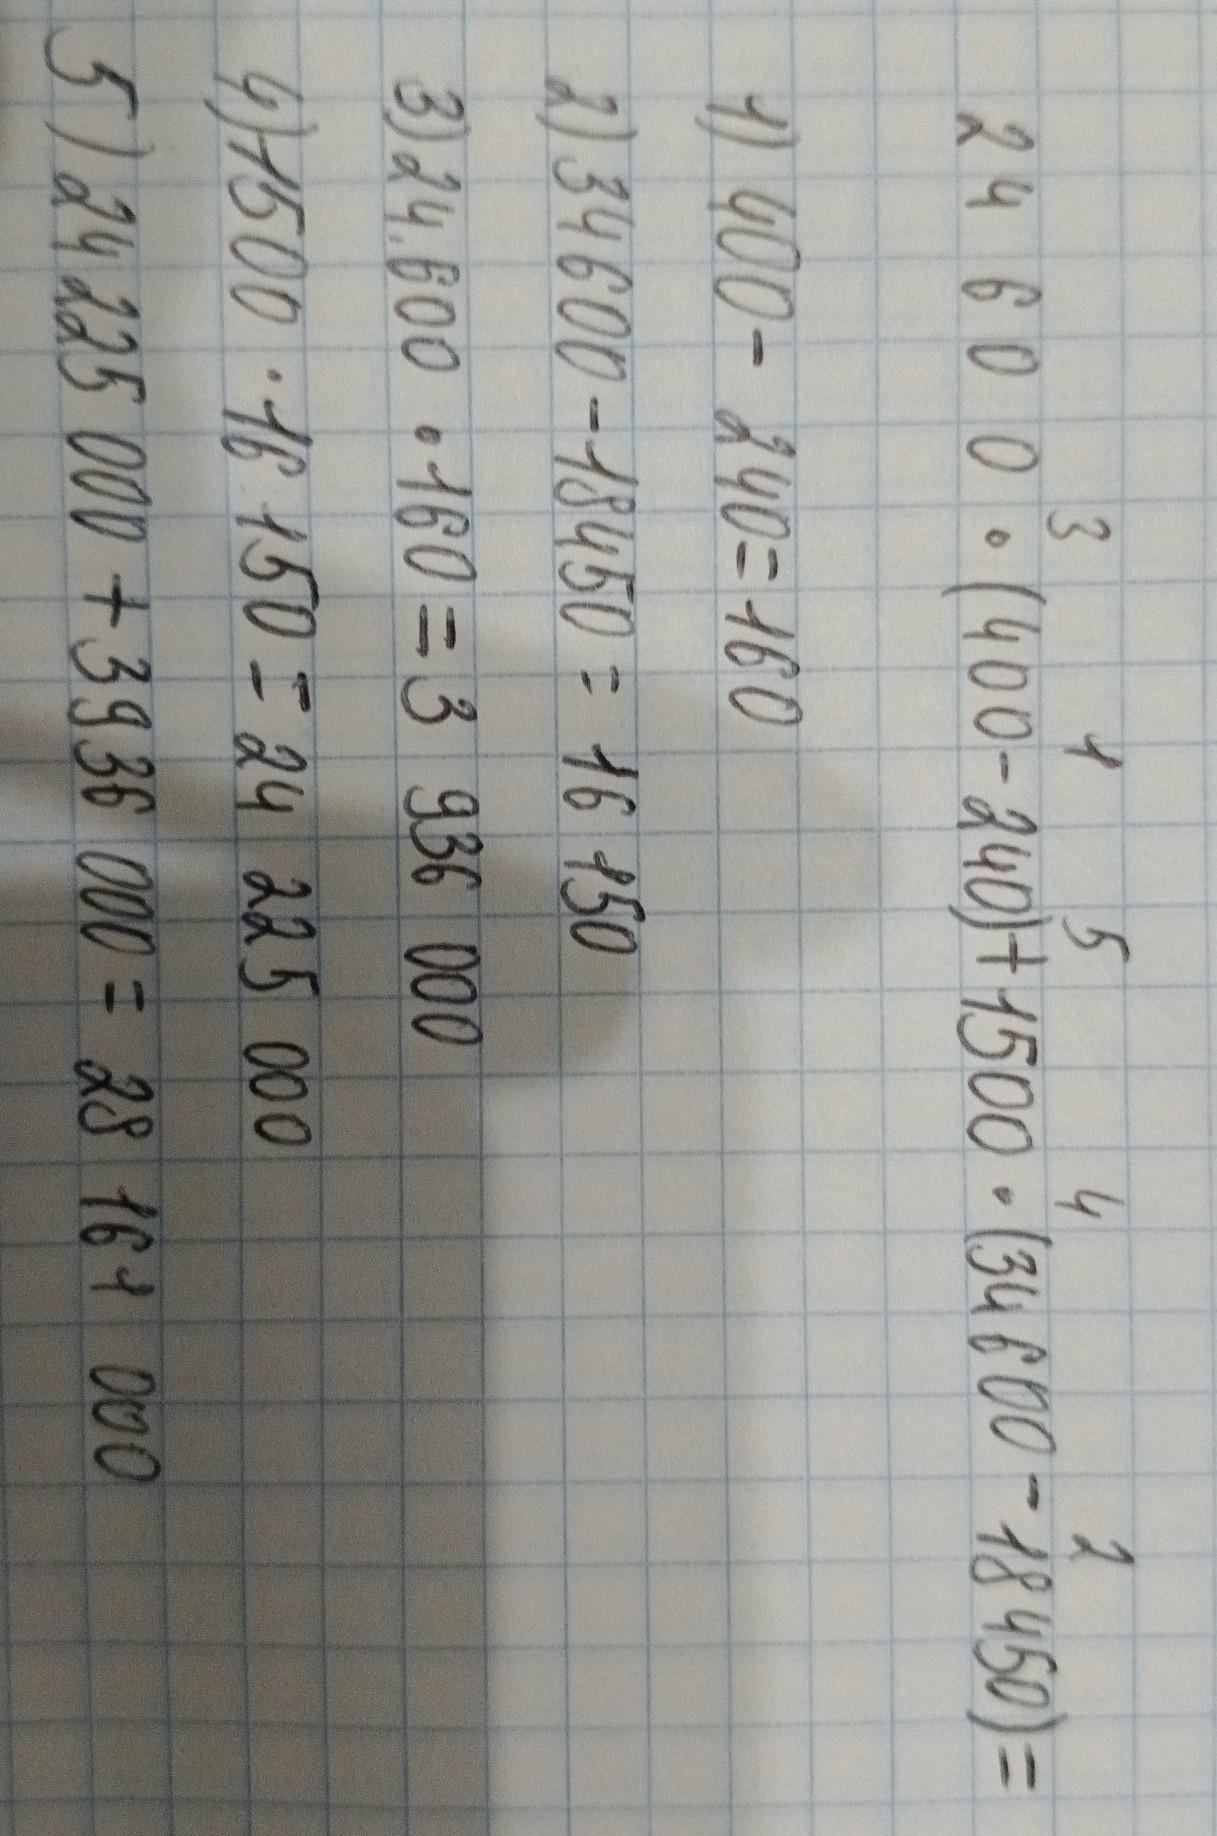 3 1 5 4 2
24600 · (400 - 240) + 1500 · (34600 - 18450) =
1) 400 - 240 = 160
2) 34600 - 18450 = 16 150
3) 24.600 · 160 = 3 936 000
4) 1500 · 16 150 = 24 225 000
5) 24 225 000 + 3936 000 = 28 161 000